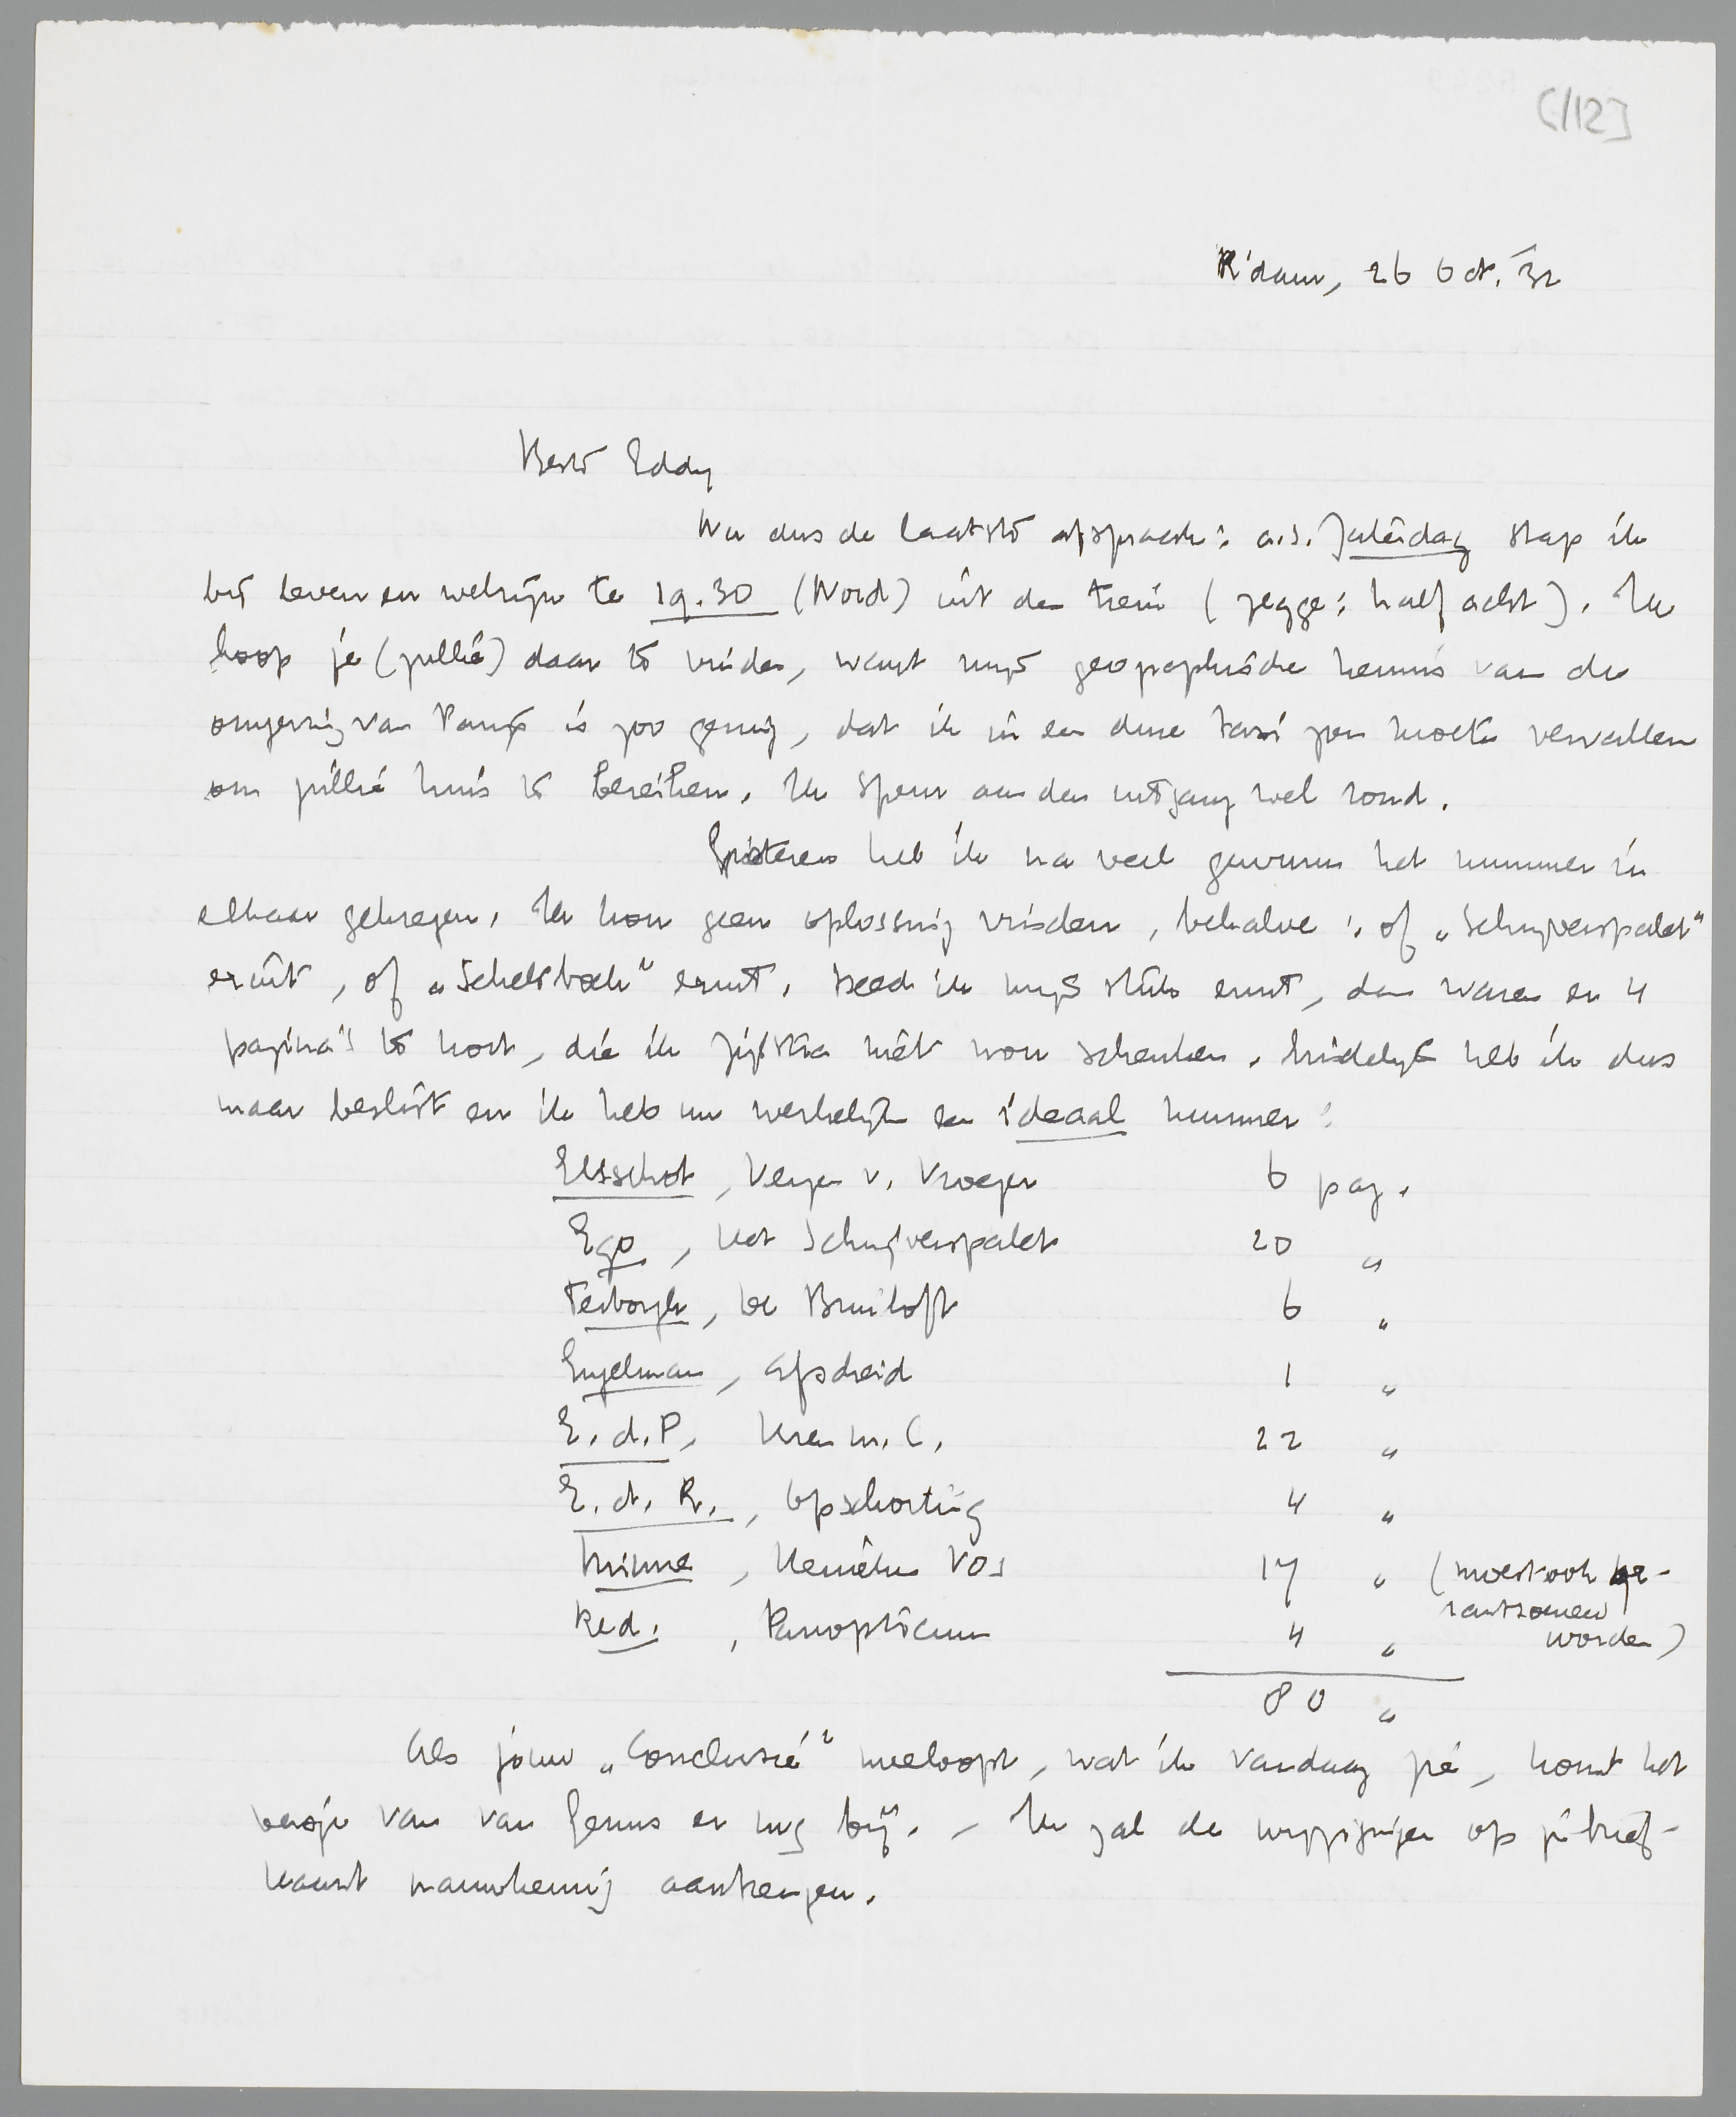 [112]
R'dam, 26 Oct. '32
Beste Eddy
Nu dus de laatste afspraak: a.s. Zaterdag stap ik
bij leven en welzijn te 19.30 (Nord) uit den trein (zegge: half acht). Ik
hoop je (jullie) daar te vinden, want mijn geographische kennis van de
omgeving van Parijs is zoo gering, dat ik in een dure taxi zou moeten vervallen
om jullie huis te bereiken. Ik speur aan den uitgang wel rond.
Gisteren heb ik na veel gewurm het nummer in
elkaar gekregen. Ik kon geen oplossing vinden, behalve: of „Schrijverspalet"
eruit, of „Scheltboek" eruit. Deed ik mijn stuk eruit, dan waren er 4
pagina's te kort, die ik Zijlstra niet wou schenken. Eindelijk heb ik dus
maar beslist en ik heb nu werkelijk een ideaal nummer:
Elsschot, Verzen v. Vroeger 6 pag.
Ego, Het Schrijverspalet 20 „
Terborgh, De Bruiloft 6 „
Engelman, Afscheid 1 „
E. d. P., Uren m. C. 22 „
E. d. R., Opschorting 4 „
Minne, Heineke Vos 17 „ (moest ook ge-
rantsoeneerd
Red., Panopticum 4 „ worden)
80 „
Als jouw „Conclusie" meeloopt, wat ik vandaag zie, komt het
versje van van Genns er nog bij. – Ik zal de wijzigingen op je brief-
kaart nauwkeurig aanbrengen.